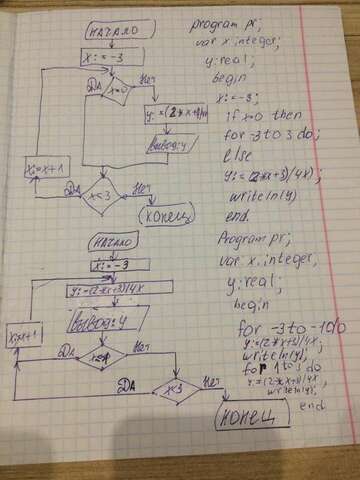 НАЧАЛО
x:=-3
ДА
x=0
Нет
y:=(2*x+3)/4x
Вывод: y
x:=x+1
ДА
x<3
Нет
КОНЕЦ
program pr;
var x:integer;
y:real;
begin
x:=-3;
if x=0 then
for -3 to 3 do;
else
y:=(2*x+3)/4x);
writeln(y)
end.
НАЧАЛО
x:=-3
y:=(2*x+3)/4x
Вывод: y
x:=x+1
ДА
Нет
ДА
x<3
Нет
КОНЕЦ
Program pr;
var x:integer;
y:real;
begin
for -3 to -1 do
y:=(2*x+3)/4x;
writeln(y);
for 1 to 3 do
y:=(2*x+3)/4x,
writeln(y);
end